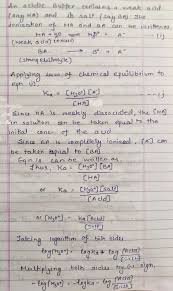 An acidic buffer contains a weak acid
(say HA) and its salt (say BA). The
ionization of HA and BA can be written as
HA + H2O ⇌ H3O+ + A- —(1)
(weak acid)
BA → B+ + A-
(strong electrolyte)
Applying law of chemical equilibrium to
eqn (1),
Ka = [H3O+] [A-] / [HA]
Since HA is weakly dissociated, the [HA]
in solution can be taken equal to the
initial conc of the acid
Since BA is completely ionised, [A-]
can be taken equal to [BA]
Eqn can be written as
Thus, Ka = [H3O+] [BA] / [HA]
or Ka = [H3O+] [Salt] / [Acid]
or [H3O+] = Ka [Acid] / [Salt]
Taking logarithm of both sides
log [H3O+] = log Ka + log [Acid] / [Salt]
Multiplying both sides by -1 sign,
-log [H3O+] = -log Ka - log [Acid] / [Salt]